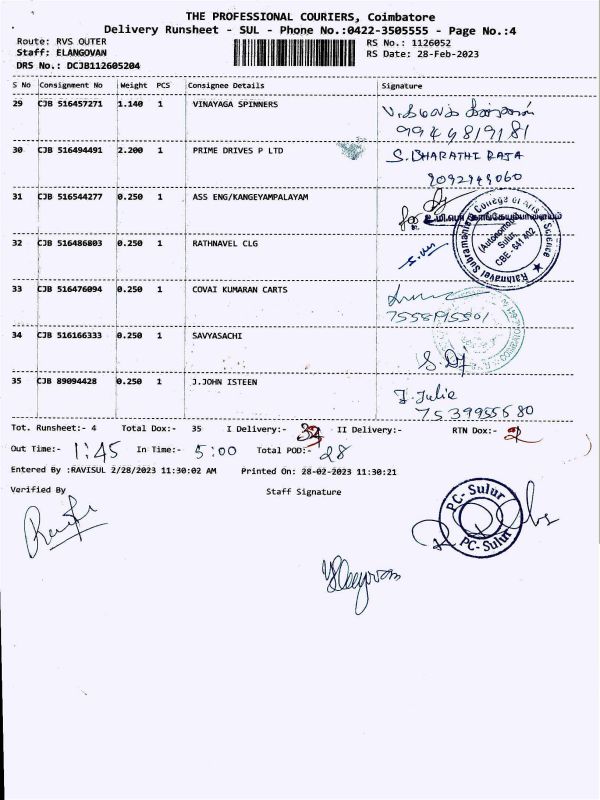 THE PROFESSIONAL COURIERS, Coimbatore
Delivery Runsheet - SUL - Phone No.:0422-3505555 - Page No.:4
Route: RVS OUTER RS No.: 1126052
Staff: ELANGOVAN RS Date: 28-Feb-2023
DRS No.: DCJB112605204
S No Consignment No Weight PCS Consignee Details Signature
29 CJB 516457271 1.140 1 VINAYAGA SPINNERS
30 CJB 516494491 2.200 1 PRIME DRIVES P LTD S. BHARATHI RAJA
31 CJB 516544277 0.250 1 ASS ENG/KANGEYAMPALAYAM
32 CJB 516486803 0.250 1 RATHNAVEL CLG
Rathnavel Subramaniam College of Arts & Science
(Autonomous)
Sulur,
CBE - 641 402
33 CJB 516476094 0.250 1 COVAI KUMARAN CARTS
34 CJB 516166333 0.250 1 SAVYASACHI
35 CJB 89094428 0.250 1 J.JOHN ISTEEN J. Julie
Tot. Runsheet:- 4 Total Dox:- 35 I Delivery:- II Delivery:- RTN Dox:- 2
Out Time:- 1:45 In Time:- 5:00 Total POD:- 28
Entered By :RAVISUL 2/28/2023 11:30:02 AM Printed On: 28-02-2023 11:30:21
Verified By Staff Signature
PC- Sulur
PC- Sulur